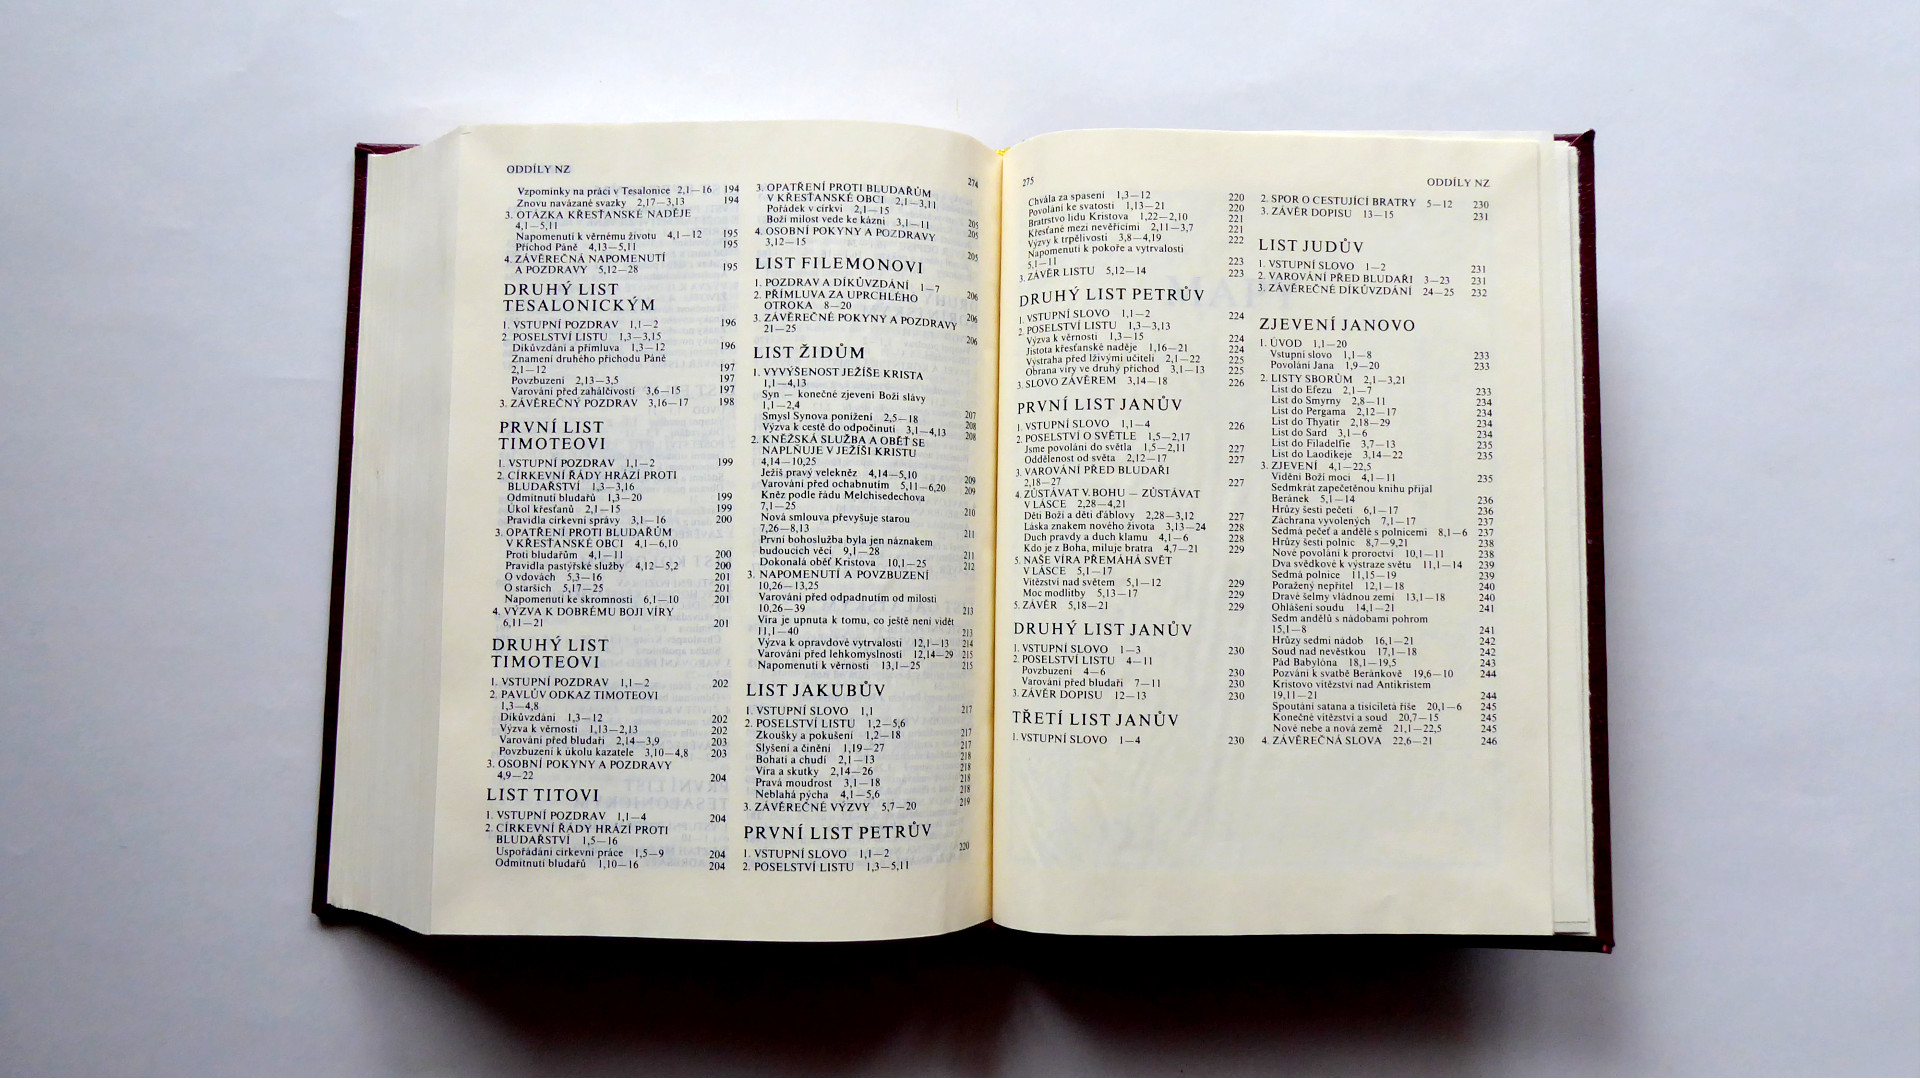 ODDÍLY NZ
Vzpomínky na práci v Tesalonice 2,1—16 194
Znovu navázané svazky 2,17—3,13 194
3. OTÁZKA KŘESŤANSKÉ NADĚJE
4,1—5,11
Napomenutí k věrnému životu 4,1—12 195
Příchod Páně 4,13—5,11 195
4. ZÁVĚREČNÁ NAPOMENUTÍ
A POZDRAVY 5,12—28 195
DRUHÝ LIST
TESALONICKÝM
1. VSTUPNÍ POZDRAV 1,1—2 196
2. POSELSTVÍ LISTU 1,3—3,15
Díkůvzdání a přímluva 1,3—12 196
Znamení druhého příchodu Páně
2,1—12 197
Povzbuzení 2,13—3,5 197
Varování před zahálčivostí 3,6—15 197
3. ZÁVĚREČNÝ POZDRAV 3,16—17 198
PRVNÍ LIST
TIMOTEOVI
1. VSTUPNÍ POZDRAV 1,1—2 199
2. CÍRKEVNÍ ŘÁDY HRÁZÍ PROTI
BLUDAŘSTVÍ 1,3—3,16
Odmítnutí bludařů 1,3—20 199
Úkol křesťanů 2,1—15 199
Pravidla církevní správy 3,1—16 200
3. OPATŘENÍ PROTI BLUDAŘŮM
V KŘESŤANSKÉ OBCI 4,1—6,10
Proti bludařům 4,1—11 200
Pravidla pastýřské služby 4,12—5,2 200
O vdovách 5,3—16 201
O starších 5,17—25 201
Napomenutí ke skromnosti 6,1—10 201
4. VÝZVA K DOBRÉMU BOJI VÍRY
6,11—21 201
DRUHÝ LIST
TIMOTEOVI
1. VSTUPNÍ POZDRAV 1,1—2 202
2. PAVLŮV ODKAZ TIMOTEOVI
1,3—4,8
Díkůvzdání 1,3—12 202
Výzva k věrnosti 1,13—2,13 202
Varování před bludaři 2,14—3,9 203
Povzbuzení k úkolu kazatele 3,10—4,8 203
3. OSOBNÍ POKYNY A POZDRAVY
4,9—22 204
LIST TITOVI
1. VSTUPNÍ POZDRAV 1,1—4 204
2. CÍRKEVNÍ ŘÁDY HRÁZÍ PROTI
BLUDAŘSTVÍ 1,5—16
Uspořádání církevní práce 1,5—9 204
Odmítnutí bludařů 1,10—16 204
274
3. OPATŘENÍ PROTI BLUDAŘŮM
V KŘESŤANSKÉ OBCI 2,1—3,11
Pořádek v církvi 2,1—15 205
Boží milost vede ke kázni 3,1—11 205
4. OSOBNÍ POKYNY A POZDRAVY
3,12—15 205
LIST FILEMONOVI
1. POZDRAV A DÍKŮVZDÁNÍ 1—7 206
2. PŘÍMLUVA ZA UPRCHLÉHO
OTROKA 8—20 206
3. ZÁVĚREČNÉ POKYNY A POZDRAVY
21—25 206
LIST ŽIDŮM
1. VYVÝŠENOST JEŽÍŠE KRISTA
1,1—4,13
Syn — konečné zjevení Boží slávy
1,1—2,4 207
Smysl Synova ponížení 2,5—18 208
Výzva k cestě do odpočinutí 3,1—4,13 208
2. KNĚŽSKÁ SLUŽBA A OBĚŤ SE
NAPLŇUJE V JEŽÍŠI KRISTU
4,14—10,25
Ježíš pravý velekněz 4,14—5,10 209
Varování před ochabnutím 5,11—6,20 209
Kněz podle řádu Melchisedechova
7,1—25 210
Nová smlouva převyšuje starou
7,26—8,13 211
První bohoslužba byla jen náznakem
budoucích věcí 9,1—28 211
Dokonalá oběť Kristova 10,1—25 212
3. NAPOMENUTÍ A POVZBUZENÍ
10,26—13,25
Varování před odpadnutím od milosti
10,26—39 213
Víra je upnuta k tomu, co ještě není vidět
11,1—40 213
Výzva k opravdové vytrvalosti 12,1—13 214
Varování před lehkomyslností 12,14—29 215
Napomenutí k věrnosti 13,1—25 215
LIST JAKUBŮV
1. VSTUPNÍ SLOVO 1,1 217
2. POSELSTVÍ LISTU 1,2—5,6
Zkoušky a pokušení 1,2—18 217
Slyšení a činění 1,19—27 217
Bohatí a chudí 2,1—13 218
Víra a skutky 2,14—26 218
Pravá moudrost 3,1—18 218
Neblahá pýcha 4,1—5,6 218
3. ZÁVĚREČNÉ VÝZVY 5,7—20 219
PRVNÍ LIST PETRŮV
1. VSTUPNÍ SLOVO 1,1—2 220
2. POSELSTVÍ LISTU 1,3—5,11
275
Chvála za spasení 1,3—12 220
Povolání ke svatosti 1,13—21 220
Bratrstvo lidu Kristova 1,22—2,10 221
Křesťané mezi nevěřícími 2,11—3,7 221
Výzvy k trpělivosti 3,8—4,19 222
Napomenutí k pokoře a vytrvalosti
5,1—11 223
3. ZÁVĚR LISTU 5,12—14 223
DRUHÝ LIST PETRŮV
1. VSTUPNÍ SLOVO 1,1—2 224
2. POSELSTVÍ LISTU 1,3—3,13
Výzva k věrnosti 1,3—15 224
Jistota křesťanské naděje 1,16—21 224
Výstraha před lživými učiteli 2,1—22 225
Obrana víry ve druhý příchod 3,1—13 225
3. SLOVO ZÁVĚREM 3,14—18 226
PRVNÍ LIST JANŮV
1. VSTUPNÍ SLOVO 1,1—4 226
2. POSELSTVÍ O SVĚTLE 1,5—2,17
Jsme povoláni do světla 1,5—2,11 227
Oddělenost od světa 2,12—17 227
3. VAROVÁNÍ PŘED BLUDAŘI
2,18—27 227
4. ZŮSTÁVAT V BOHU — ZŮSTÁVAT
V LÁSCE 2,28—4,21
Děti Boží a děti ďáblovy 2,28—3,12 227
Láska znakem nového života 3,13—24 228
Duch pravdy a duch klamu 4,1—6 228
Kdo je z Boha, miluje bratra 4,7—21 229
5. NAŠE VÍRA PŘEMÁHÁ SVĚT
V LÁSCE 5,1—17
Vítězství nad světem 5,1—12 229
Moc modlitby 5,13—17 229
5. ZÁVĚR 5,18—21 229
DRUHÝ LIST JANŮV
1. VSTUPNÍ SLOVO 1—3 230
2. POSELSTVÍ LISTU 4—11
Povzbuzení 4—6 230
Varování před bludaři 7—11 230
3. ZÁVĚR DOPISU 12—13 230
TŘETÍ LIST JANŮV
1. VSTUPNÍ SLOVO 1—4 230
ODDÍLY NZ
2. SPOR O CESTUJÍCÍ BRATRY 5—12 230
3. ZÁVĚR DOPISU 13—15 231
LIST JUDŮV
1. VSTUPNÍ SLOVO 1—2 231
2. VAROVÁNÍ PŘED BLUDAŘI 3—23 231
3. ZÁVĚREČNÉ DÍKŮVZDÁNÍ 24—25 232
ZJEVENÍ JANOVO
1. ÚVOD 1,1—20
Vstupní slovo 1,1—8 233
Povolání Jana 1,9—20 233
2. LISTY SBORŮM 2,1—3,21
List do Efezu 2,1—7 233
List do Smyrny 2,8—11 234
List do Pergama 2,12—17 234
List do Thyatir 2,18—29 234
List do Sard 3,1—6 234
List do Filadelfie 3,7—13 235
List do Laodikeje 3,14—22 235
3. ZJEVENÍ 4,1—22,5
Vidění Boží moci 4,1—11 235
Sedmkrát zapečetěnou knihu přijal
Beránek 5,1—14 236
Hrůzy šesti pečetí 6,1—17 236
Záchrana vyvolených 7,1—17 237
Sedmá pečeť a andělé s polnicemi 8,1—6 237
Hrůzy šesti polnic 8,7—9,21 238
Nové povolání k proroctví 10,1—11 238
Dva svědkové k výstraze světu 11,1—14 239
Sedmá polnice 11,15—19 239
Poražený nepřítel 12,1—18 240
Dravé šelmy vládnou zemi 13,1—18 240
Ohlášení soudu 14,1—21 241
Sedm andělů s nádobami pohrom
15,1—8 241
Hrůzy sedmi nádob 16,1—21 242
Soud nad nevěstkou 17,1—18 242
Pád Babylóna 18,1—19,5 243
Pozvání k svatbě Beránkově 19,6—10 244
Kristovo vítězství nad Antikristem
19,11—21 244
Spoutání satana a tisíciletá říše 20,1—6 245
Konečné vítězství a soud 20,7—15 245
Nové nebe a nová země 21,1—22,5 245
4. ZÁVĚREČNÁ SLOVA 22,6—21 246